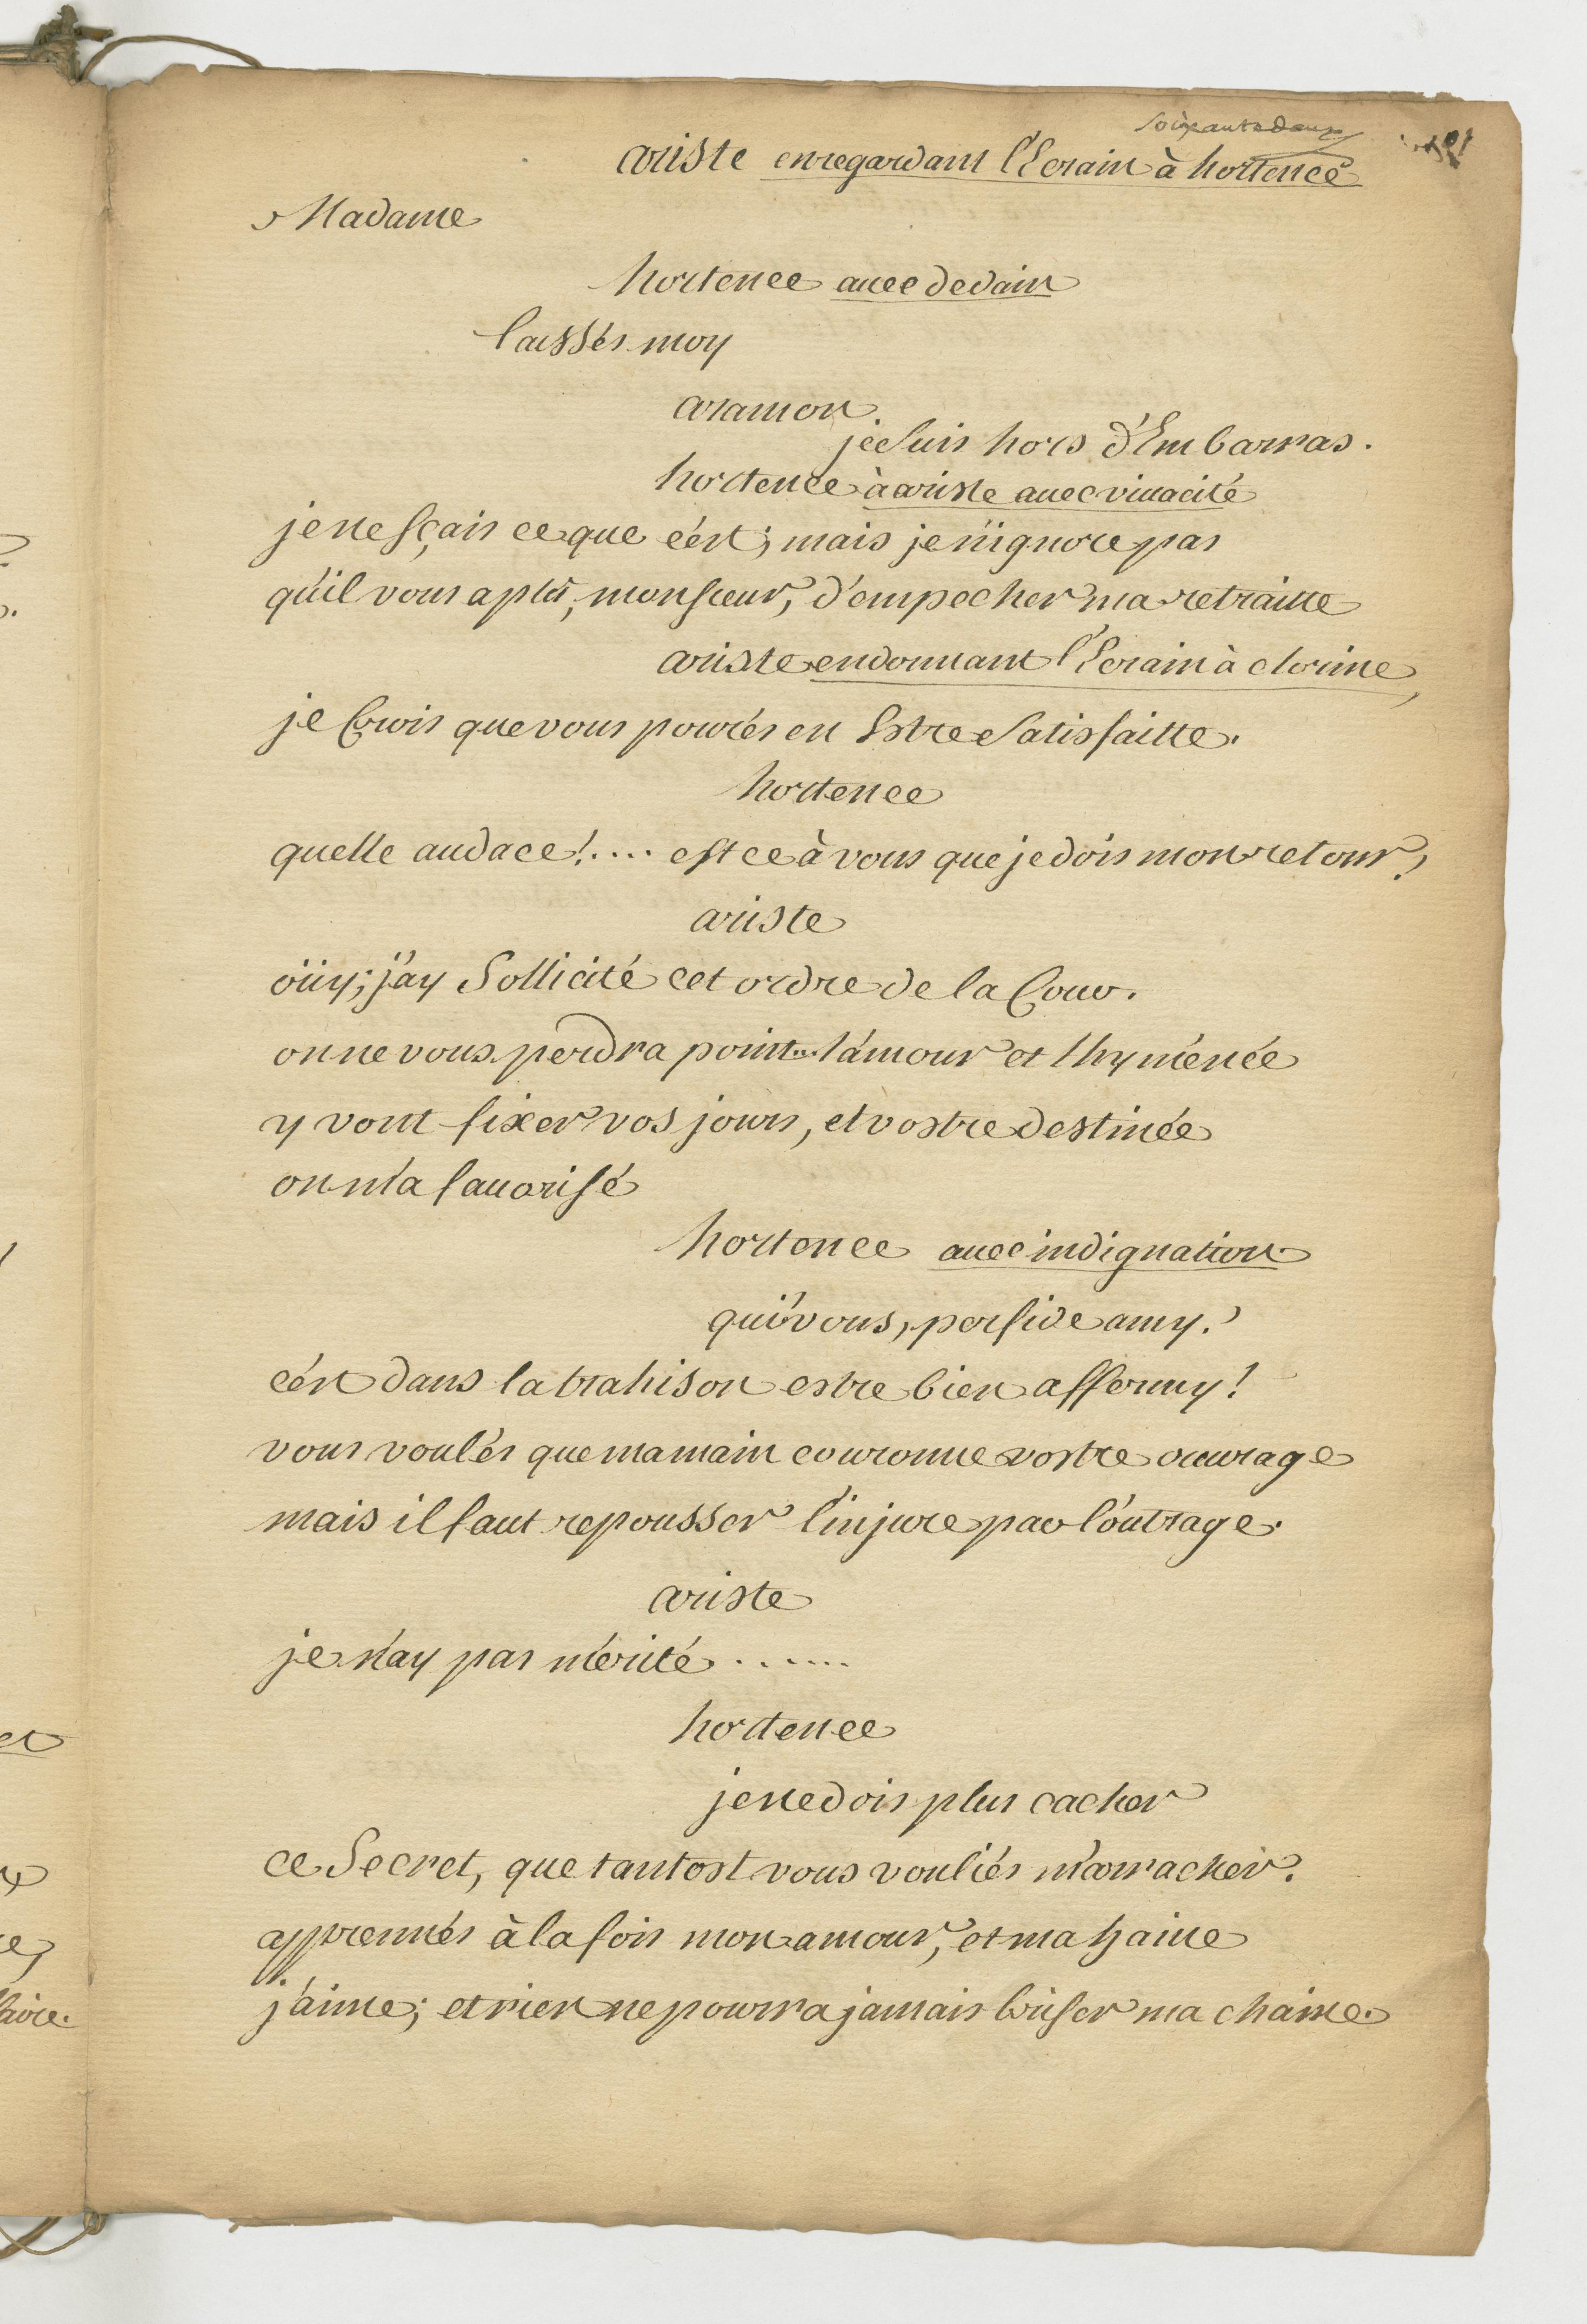 soixante deux
ariste en regardant l'Ecrain à hortence
Madame
hortence auec dedain
laissés moy
aramon
je suis hors d'Embarras.
hortence à ariste auec viuacité
je ne sçais ce que c'est; mais je n'ignore pas
qu'il vous a plû, monsieur, d'empecher ma retraitte
ariste en donnant l'Ecrain à clorine
je Crois que vous pourés en Estre Satisfaitte.
hortence
quelle audace!.... est ce à vous que je dois mon retour?
ariste
oüy; j'ay Sollicité cet ordre de la Cour.
on ne vous perdra point... l'amour et l'hyménée
y vont fixer vos jours, et vostre destinée
on m'a fauorisé
hortence auec indignation
qui? vous, perfide amy?
c'est dans la trahison estre bien affermy!
vous voulés que ma main couronne vostre ouurage
mais il faut repousser l'injure par l'outrage.
ariste
je n'ay pas mérité ......
hortence
je ne dois plus cacher
ce Secret, que tantost vous vouliés m'arracher.
apprennés à la fois mon amour, et ma haine
j'aime; et rien ne pourra jamais briser ma chaine.